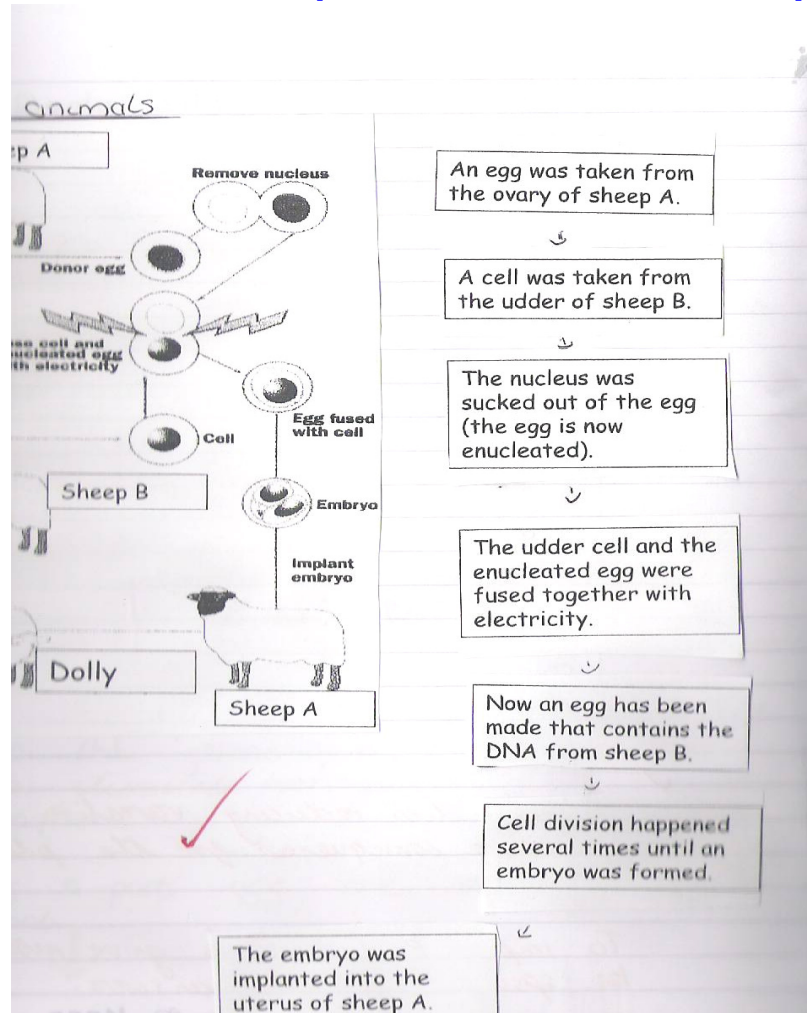 animals
ep A
Remove nucleus
Donor egg
se cell and
nucleated egg
th electricity
Egg fused
with cell
Cell
Sheep B
Embryo
Implant
embryo
Dolly
Sheep A
An egg was taken from
the ovary of sheep A.
A cell was taken from
the udder of sheep B.
The nucleus was
sucked out of the egg
(the egg is now
enucleated).
The udder cell and the
enucleated egg were
fused together with
electricity.
Now an egg has been
made that contains the
DNA from sheep B.
Cell division happened
several times until an
embryo was formed.
The embryo was
implanted into the
uterus of sheep A.